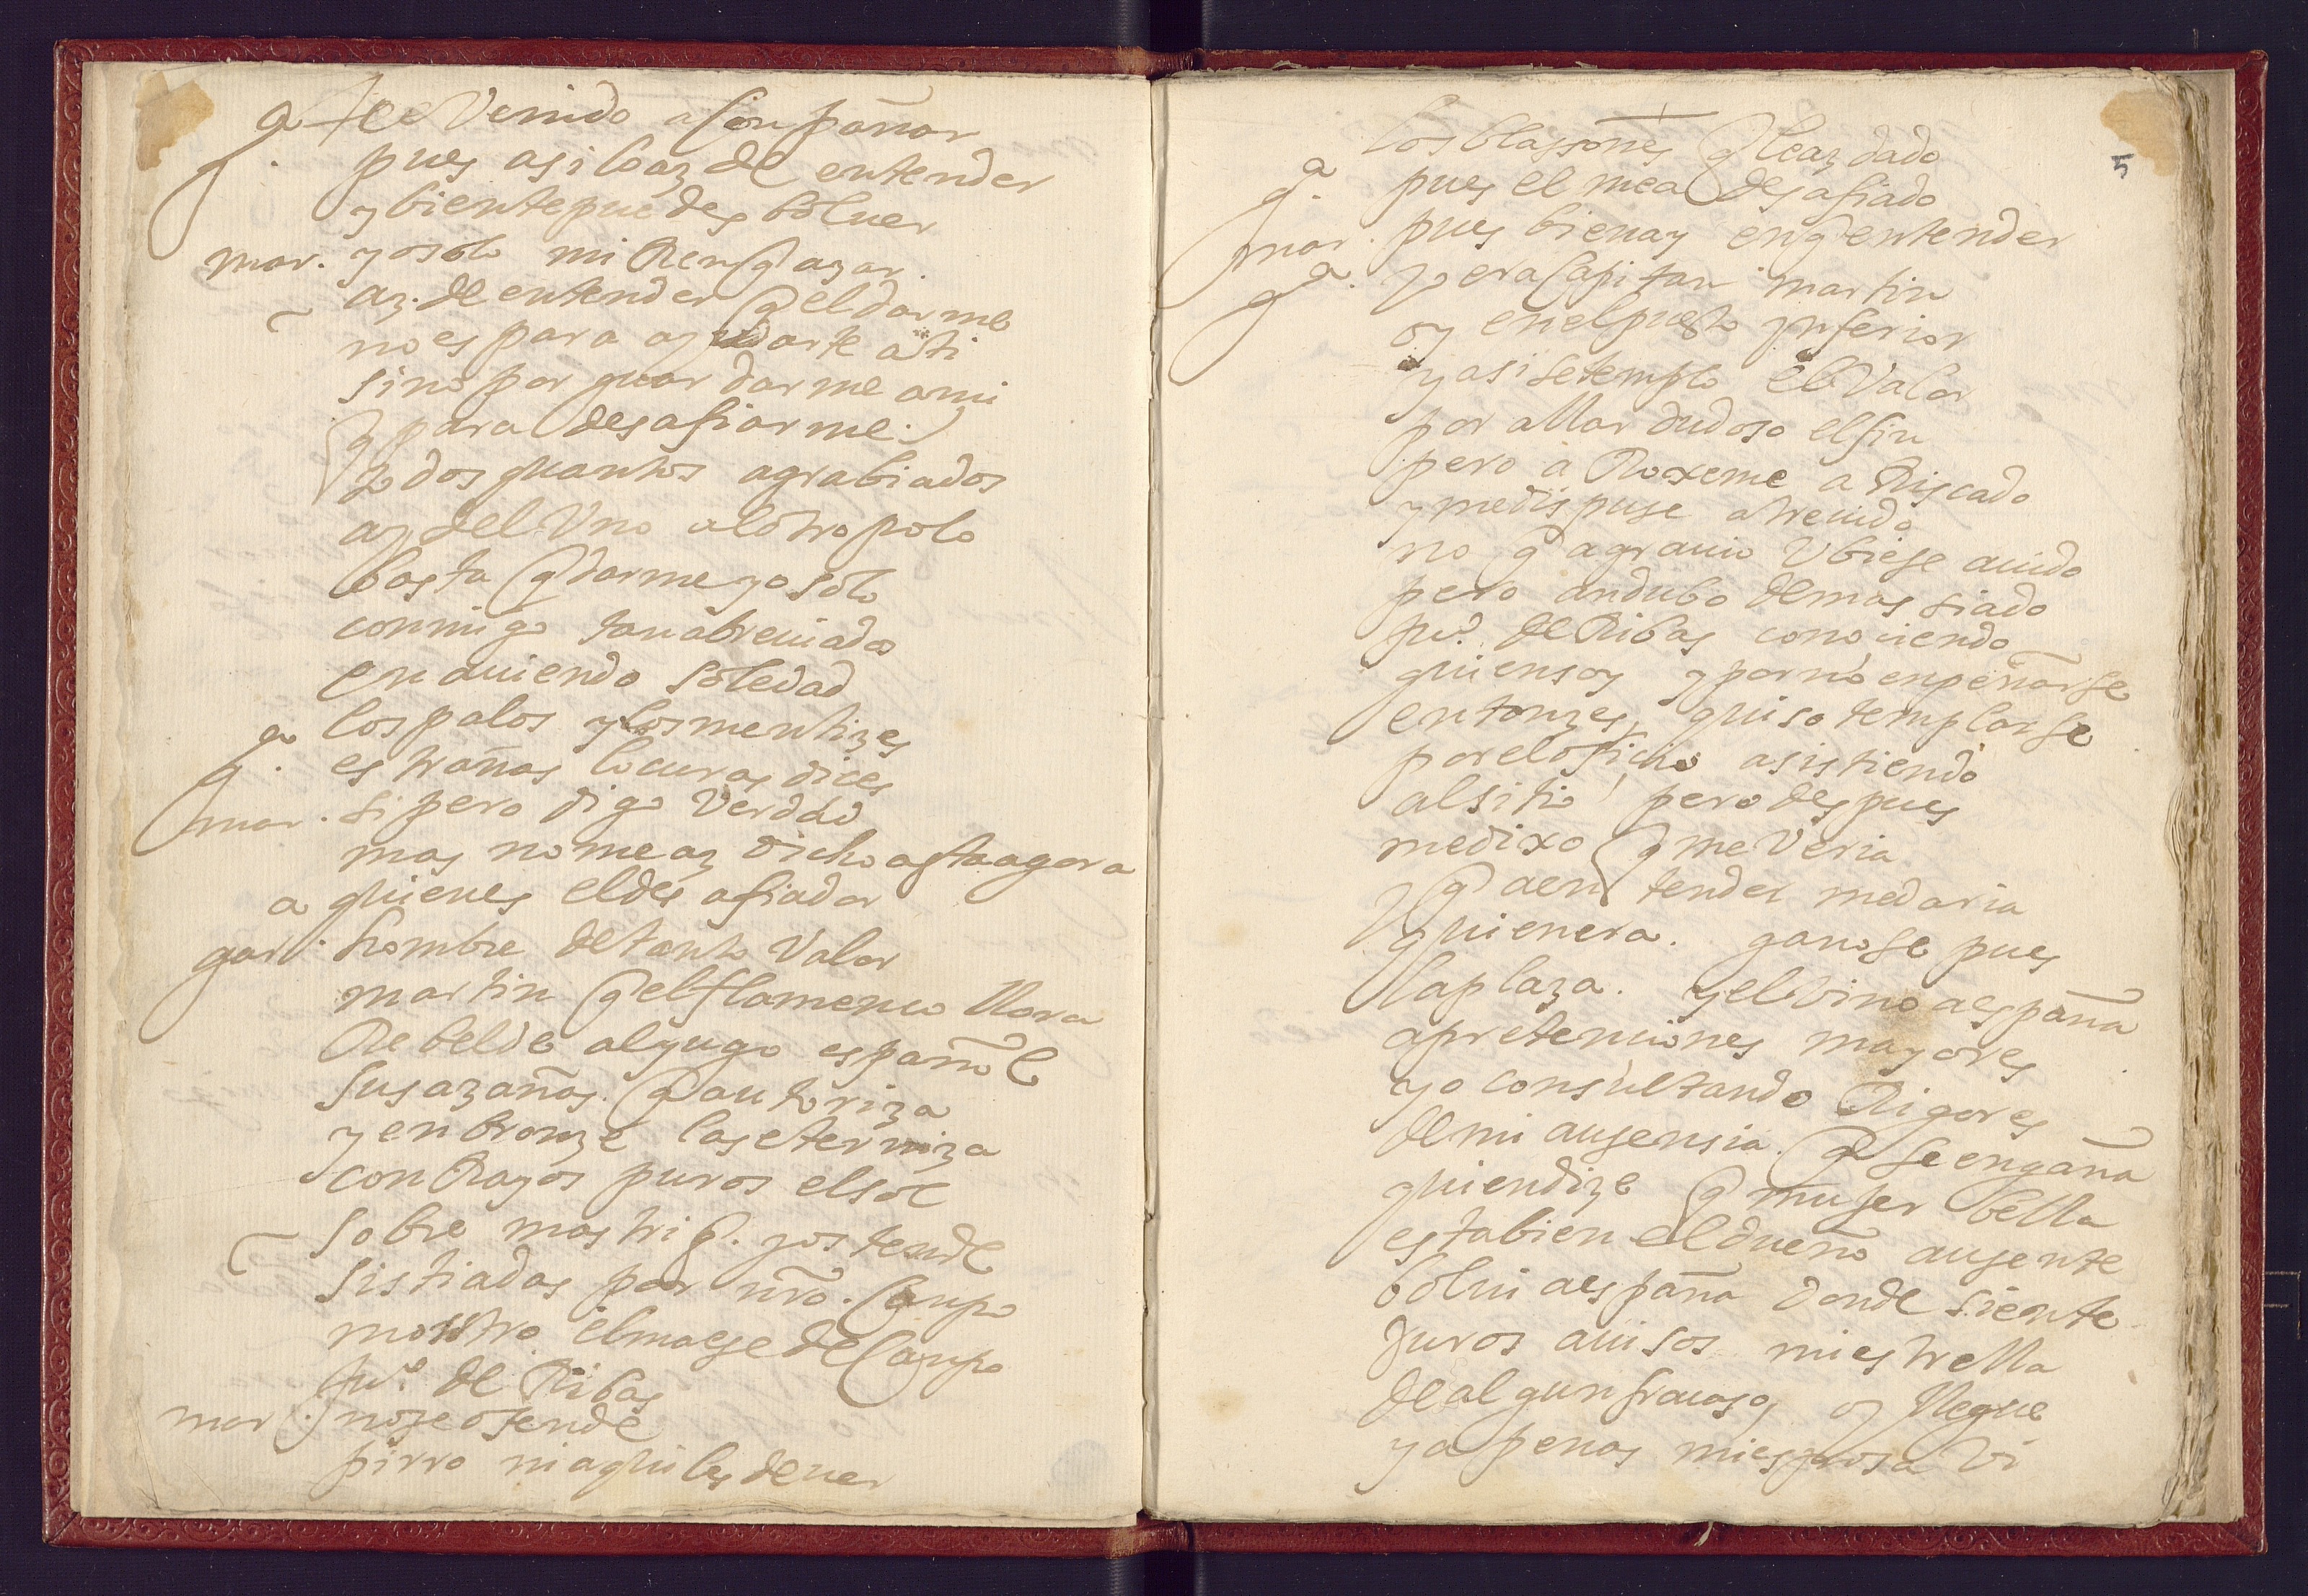 te e Venido a Conpañar
g.ª pues asi lo az de entender
y bien te puedes boluer
mar. yo solo mi Ren q azar.
az. de entender q el darme
no es para ayudarte a ti
sino por guardarme a mi
q para desafiarme
todos quantos agrabiados
ay del Vno al otro polo
basta q darme yo solo
conmigo tan abreuiado
en auiendo soledad
los palos y los mentizes
g.ª estrañas locuras dices
mar. si pero digo Verdad
mas no me az dicho asta agora
a quien es el desafiador
gar. hombre de tanto Valor
martin q el flamenco llora
Rebelde al yugo español
sus azañas. q autoriza
y en bronze las eterniza
con Rayos puros el sol
sobre mastriq. y ostende
sistiadas por nro. Canpo
mostro el maese de Canpo
fu.º de Ribas
mar. no se ofende
pirro ni aquiles de uer
5
los blassones q le az dado
g.ª pues el mea desafiado
mar. pues bien ay en q entender
g.ª yo era Capitan martin
oy en el puesto ynferior
y asi se templo el Valor
por allar dudoso el fin
pero a Roxeme a Riscado
y me dispuse atreuido
no q agrauio Vbiese auido
pero andubo demassiado
fu.º de Ribas conociendo
quien soy y por no enpeñarse
entonzes, quiso templarse
por el oficio asistiendo
al sitio pero despues
me dixo q me Veria
q a en tender me daria
quien era. ganose pues
la plaza. y el Vino a españa
a pretenciones mayores
yo consultando Rigores
de mi ausensia. q se engaña
quien dize q muger bella
esta bien el dueño ausente
bolui a españa donde siente
duros auisos mi estrella
de algun fracaso, oy llegue
y apenas mi esposa Vi